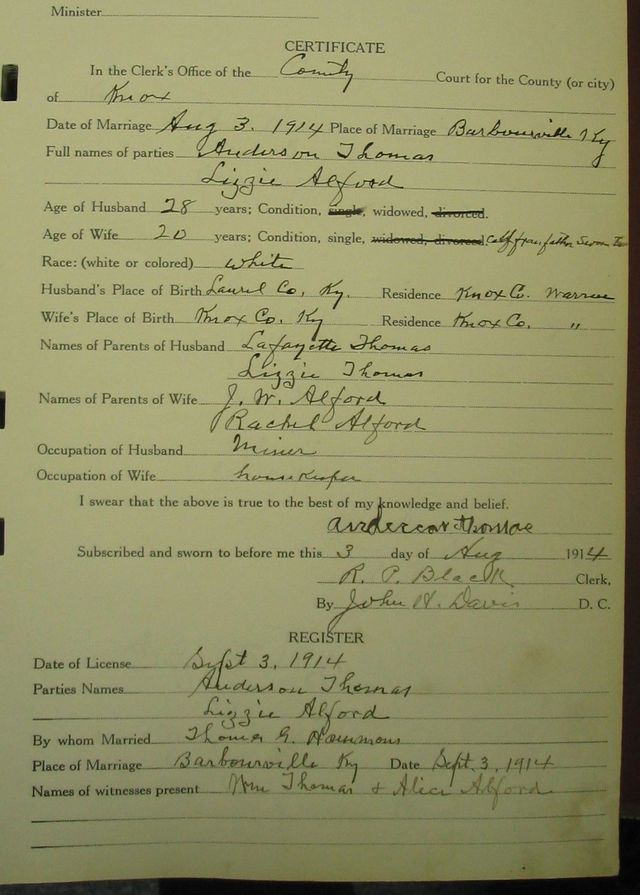 Minister
CERTIFICATE
In the Clerk's Office of the County Court for the County (or city)
of Knox
Date of Marriage Aug 3. 1914 Place of Marriage Barbourville Ky
Full names of parties Anderson Thomas
Lizzie Alford
Age of Husband 28 years; Condition, single, widowed, divorced.
Age of Wife 20 years; Condition, single, widowed, divorced
Race: (white or colored) white
Husband's Place of Birth Laurel Co, Ky. Residence Knox Co. Warren
Wife's Place of Birth Knox Co. Ky Residence Knox Co. "
Names of Parents of Husband Lafayette Thomas
Lizzie Thomas
Names of Parents of Wife J. W. Alford
Rachel Alford
Occupation of Husband Miner
Occupation of Wife housekeeper
I swear that the above is true to the best of my knowledge and belief.
anderson thomas
Subscribed and sworn to before me this 3 day of Aug 1914
R. P. Black Clerk,
By John H. Davis D. C.
REGISTER
Date of License Sept 3, 1914
Parties Names Anderson Thomas
Lizzie Alford
By whom Married Thomas G. Hammons
Place of Marriage Barbourville Ky Date Sept. 3, 1914
Names of witnesses present Wm Thomas + Alice Alford